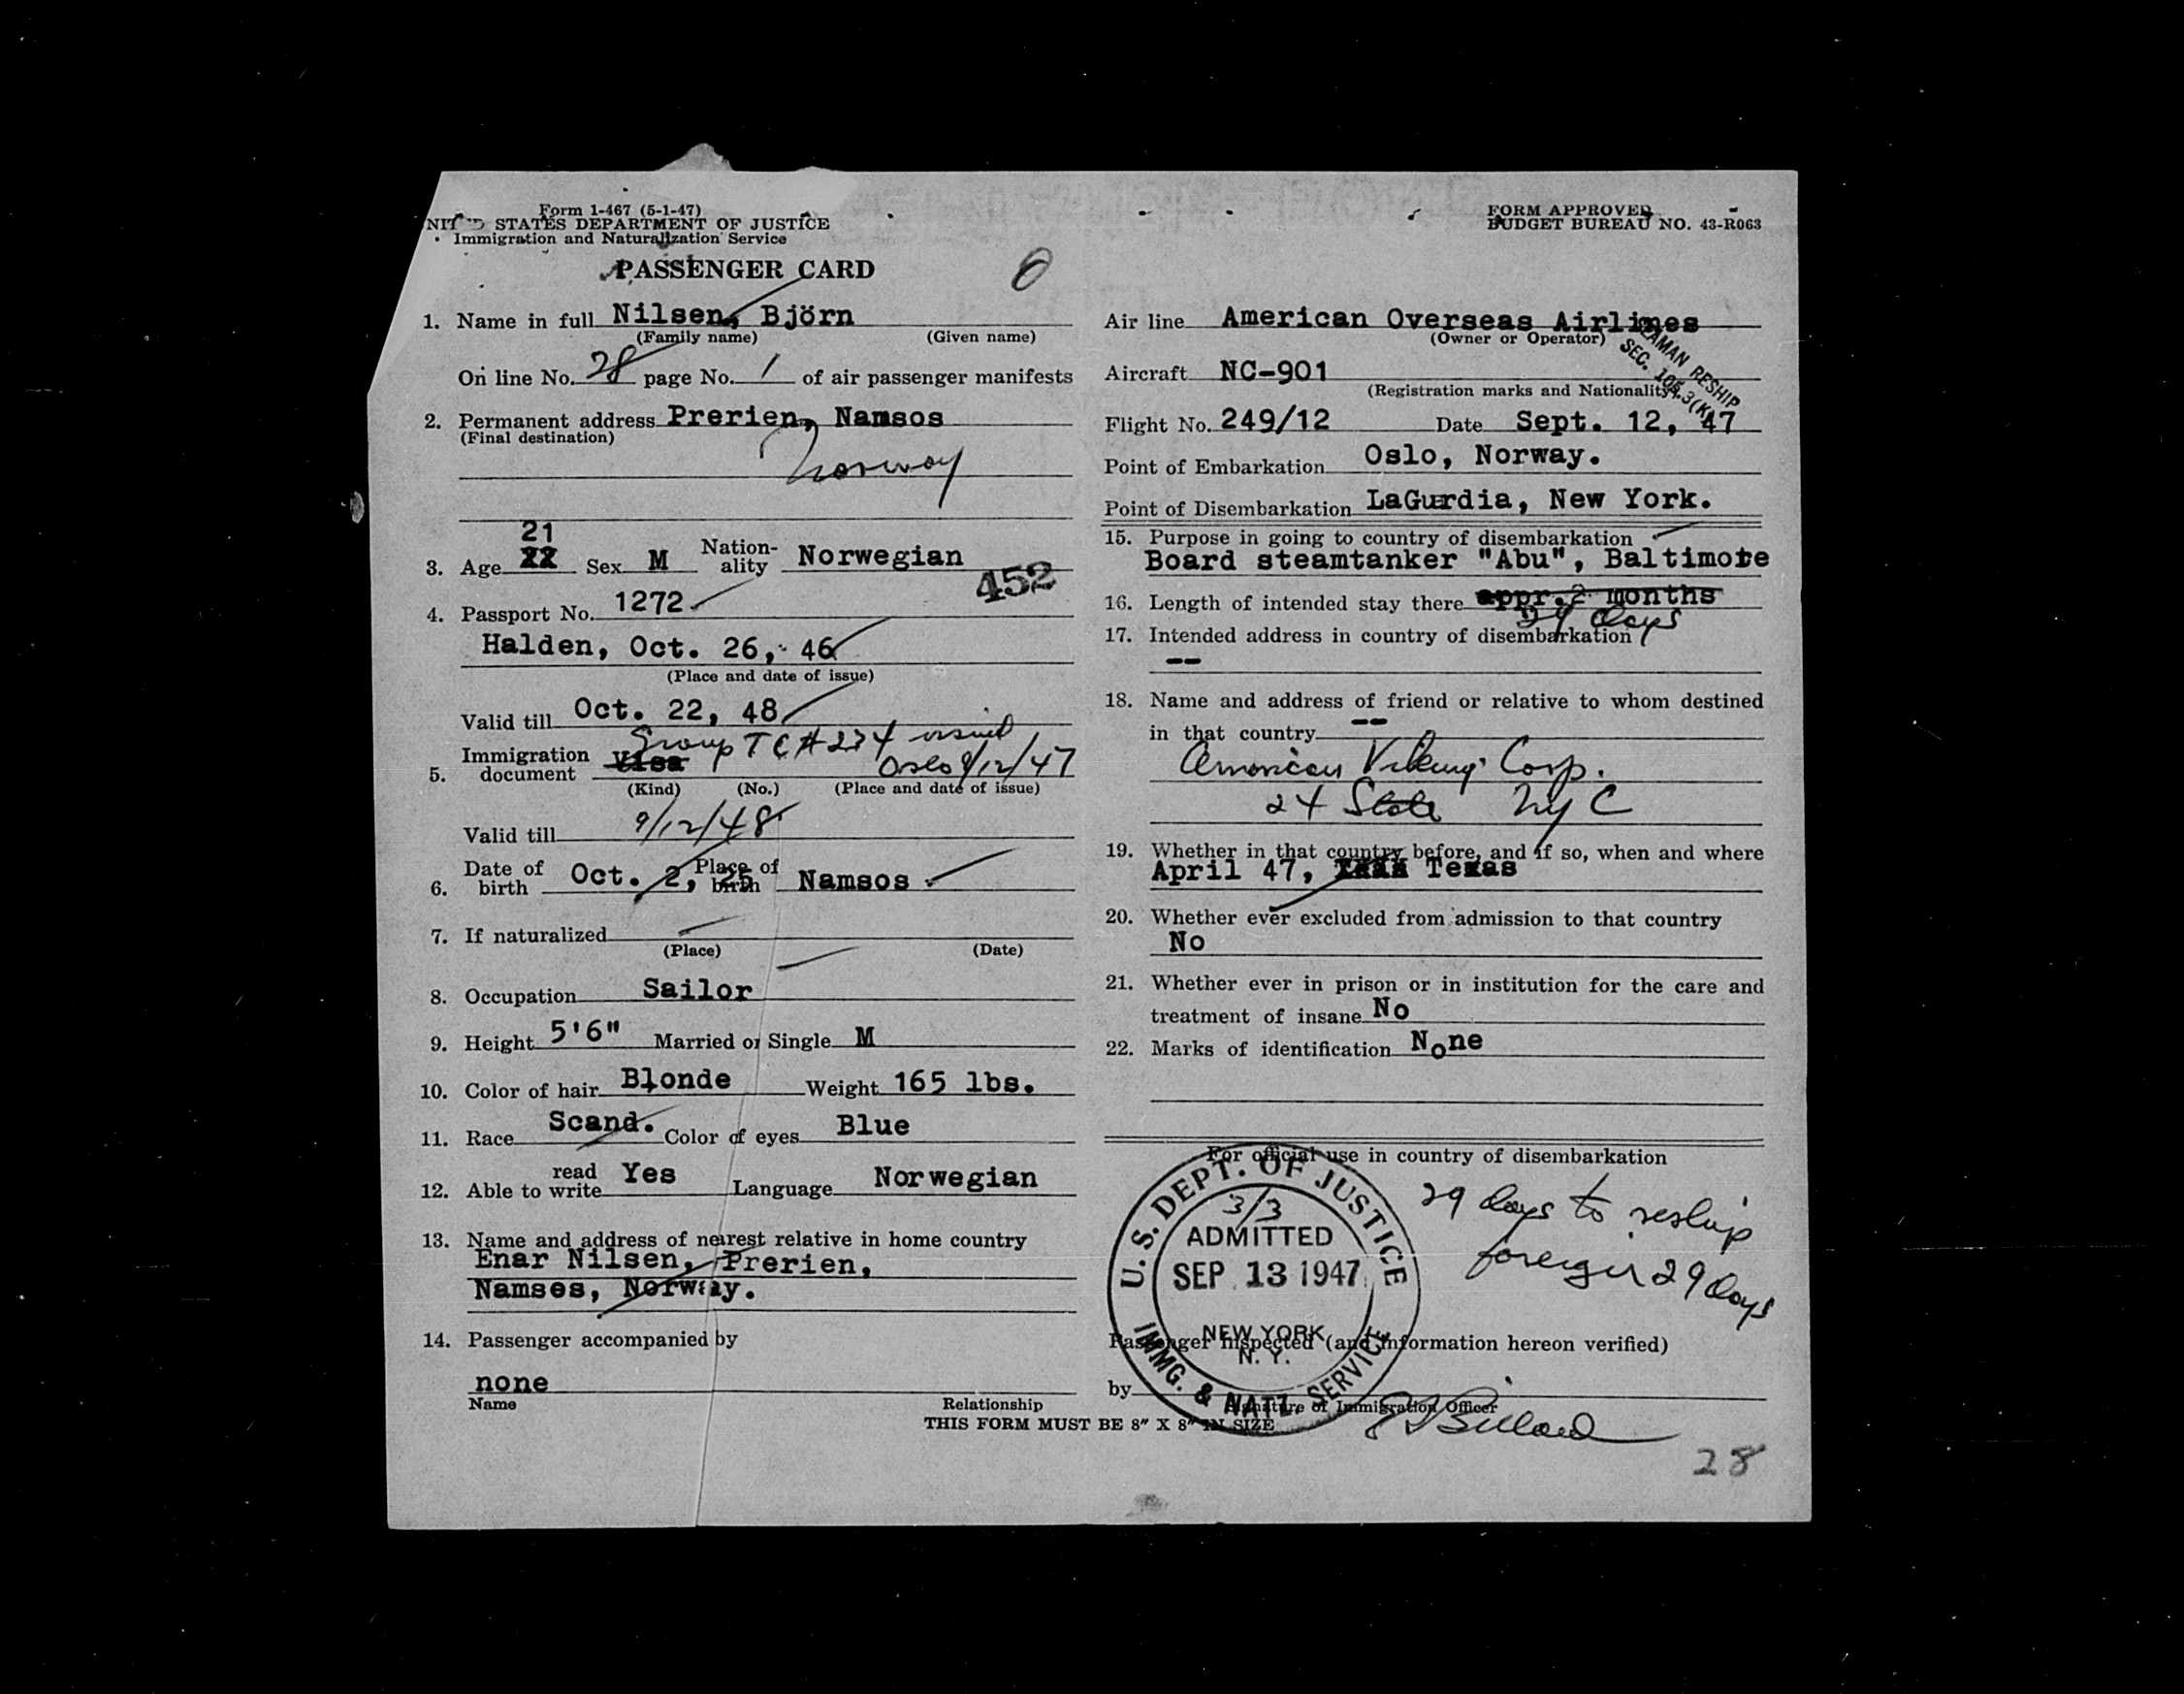 Form 1-467 (5-1-47)
STATES DEPARTMENT OF JUSTICE
Immigration and Naturalization Service
PASSENGER CARD
FORM APPROVED
BUDGET BUREAU NO. 43-R063
1. Name in full Nilsen, Björn
(Family name) (Given name)
On line No. 28 page No. 1 of air passenger manifests
2. Permanent address Prerien, Namsos
(Final destination)
Norway
21
3. Age XX Sex M Nation-ality Norwegian
452
4. Passport No. 1272
Halden, Oct. 26, 46
(Place and date of issue)
Valid till Oct. 22, 48
Group TC # 234 issued
5. Immigration document Visa Oslo 9/12/47
(Kind) (No.) (Place and date of issue)
Valid till 9/12/48
6. Date of birth Oct. 2, 25 Place of birth Namsos
7. If naturalized
(Place) (Date)
8. Occupation Sailor
9. Height 5'6" Married or Single M
10. Color of hair Blonde Weight 165 lbs.
11. Race Scand. Color of eyes Blue
12. Able to read write Yes Language Norwegian
13. Name and address of nearest relative in home country
Enar Nilsen, Prerien,
Namsos, Norway.
14. Passenger accompanied by
none
Name Relationship
THIS FORM MUST BE 8" X 8" IN SIZE
Air line American Overseas Airlines
(Owner or Operator)
SEAMAN RESHIP
SEC. 105.3(K)
Aircraft NC-901
(Registration marks and Nationality)
Flight No. 249/12 Date Sept. 12, 47
Point of Embarkation Oslo, Norway.
Point of Disembarkation LaGurdia, New York.
15. Purpose in going to country of disembarkation
Board steamtanker "Abu", Baltimore
16. Length of intended stay there appr. 2 months
29 days
17. Intended address in country of disembarkation
--
18. Name and address of friend or relative to whom destined
in that country --
American Viking Corp.
24 State NYC
19. Whether in that country before, and if so, when and where
April 47, Texas
20. Whether ever excluded from admission to that country
No
21. Whether ever in prison or in institution for the care and
treatment of insane No
22. Marks of identification None
For official use in country of disembarkation
U.S. DEPT. OF JUSTICE
3/3
ADMITTED
SEP 13 1947
NEW YORK
N. Y.
IMMG. & NATZ. SERVICE
29 days to reship
foreign 29 days
Passenger inspected (and information hereon verified)
by
Signature of Immigration Officer
28